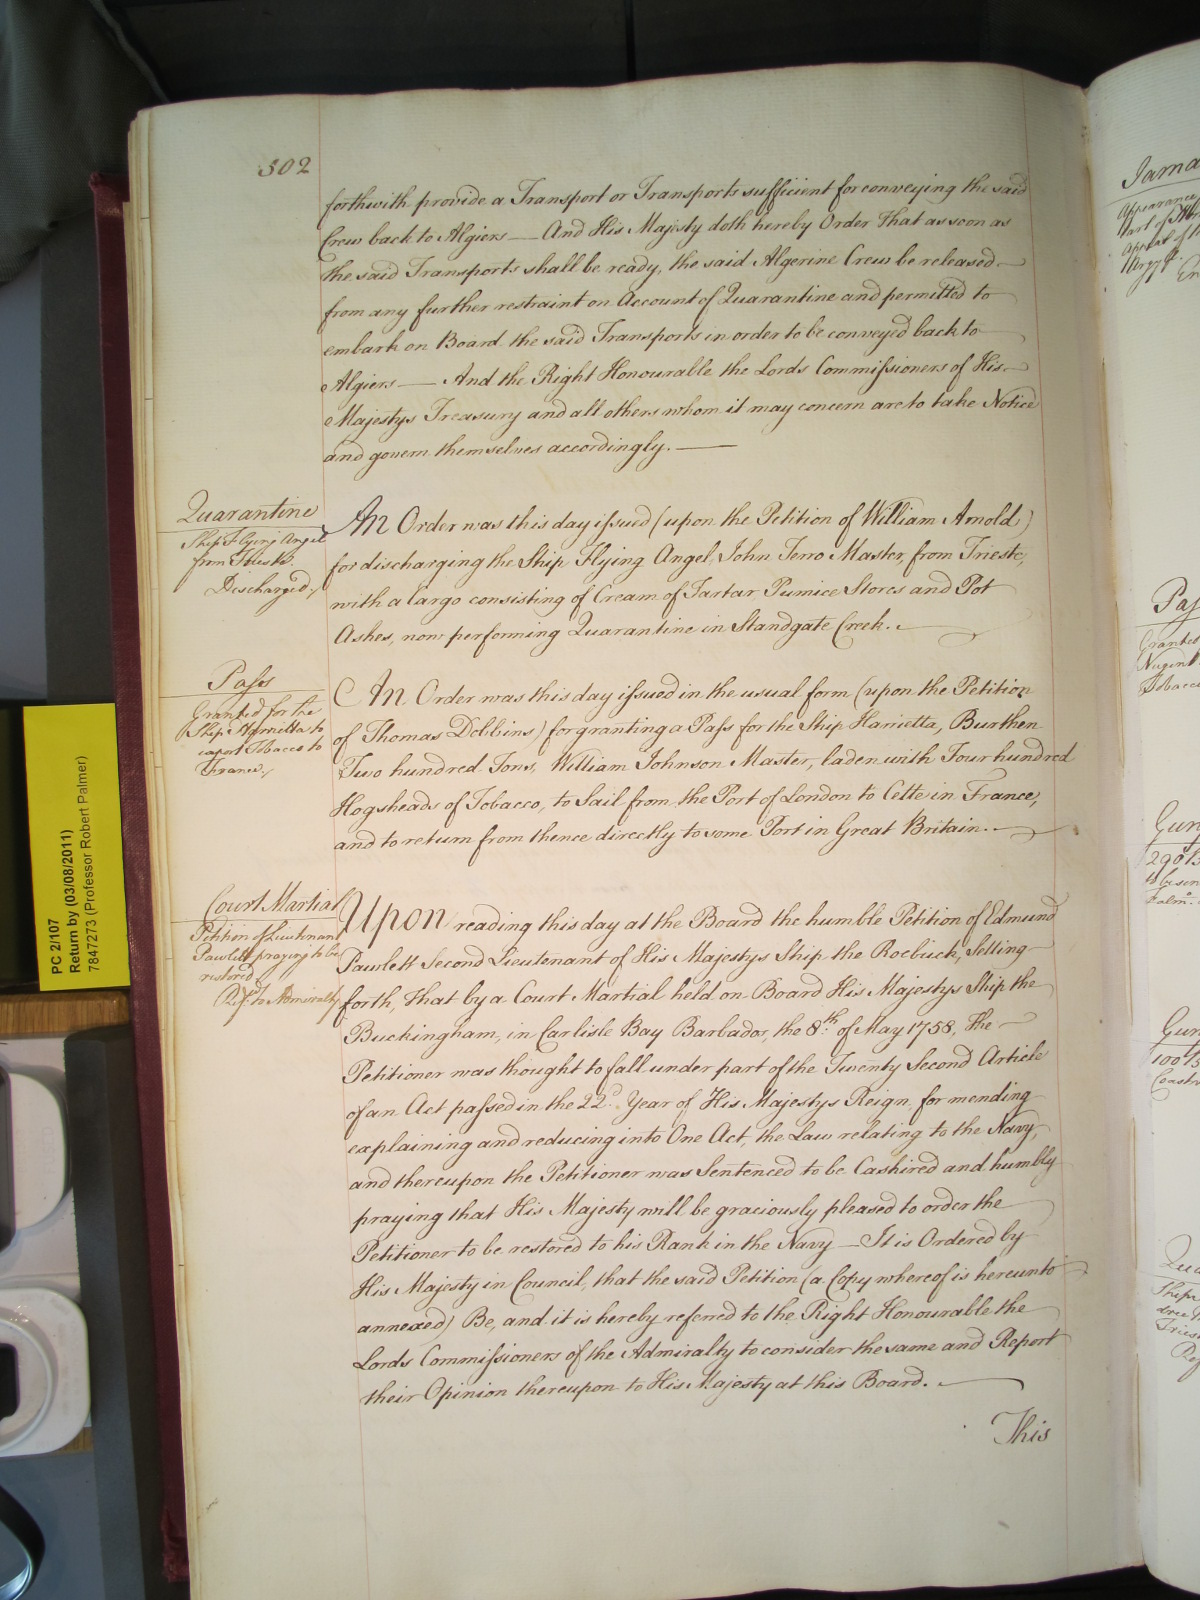 302
forthwith provide a Transport or Transports sufficient for conveying the said
Crew back to Algiers — And His Majesty doth hereby Order That as soon as
the said Transports shall be ready, the said Algerine Crew be released
from any further restraint on Account of Quarantine and permitted to
embark on Board the said Transports in order to be conveyed back to
Algiers — And the Right Honourable the Lords Commissioners of His
Majestys Treasury and all others whom it may concern are to take Notice
and govern themselves accordingly. —
Quarantine
Ship Flying Angel
from Trieste.
Discharged,
An Order was this day issued (upon the Petition of William Arnold)
for discharging the Ship Flying Angel, John Terro Master, from Trieste,
with a Cargo consisting of Cream of Tartar Pumice Stores and Pot
Ashes, now performing Quarantine in Standgate Creek.
Pass
Granted for the
Ship Harrietta to
export Tobacco to
France,
An Order was this day issued in the usual form (upon the Petition
of Thomas Dobbins) for granting a Pass for the Ship Harrietta, Burthen
Two hundred Tons, William Johnson Master, laden with Four hundred
Hogsheads of Tobacco, to Sail from the Port of London to Cette in France,
and to return from thence directly to some Port in Great Britain.
Court Martial
Petition of Lieutenant
Pawlett praying to be
restored
Ref. to Admiralty
Upon reading this day at the Board the humble Petition of Edmund
Pawlett Second Lieutenant of His Majestys Ship the Roebuck, Setting
forth, That by a Court Martial held on Board His Majestys Ship the
Buckingham, in Carlisle Bay Barbados, the 8th. of May 1758, the
Petitioner was thought to fall under part of the Twenty Second Article
of an Act passed in the 22d. Year of His Majestys Reign for mending
explaining and reducing into One Act, the Law relating to the Navy,
and thereupon the Petitioner was Sentenced to be Cashired and humbly
praying that His Majesty will be graciously pleased to order the
Petitioner to be restored to his Rank in the Navy — It is Ordered by
His Majesty in Council, that the said Petition (a Copy whereof is hereunto
annexed) Be, and it is hereby referred to the Right Honourable the
Lords Commissioners of the Admiralty to consider the same and Report
their Opinion thereupon to His Majesty at this Board.
This
PC 2/107
Return by (03/08/2011)
7847273 (Professor Robert Palmer)
Jama
Appearance
Part of
Appeal of
Pass
Granted
Nugent
Tobacco
Gun
290 B
Gun
100 B
Qua
Ships